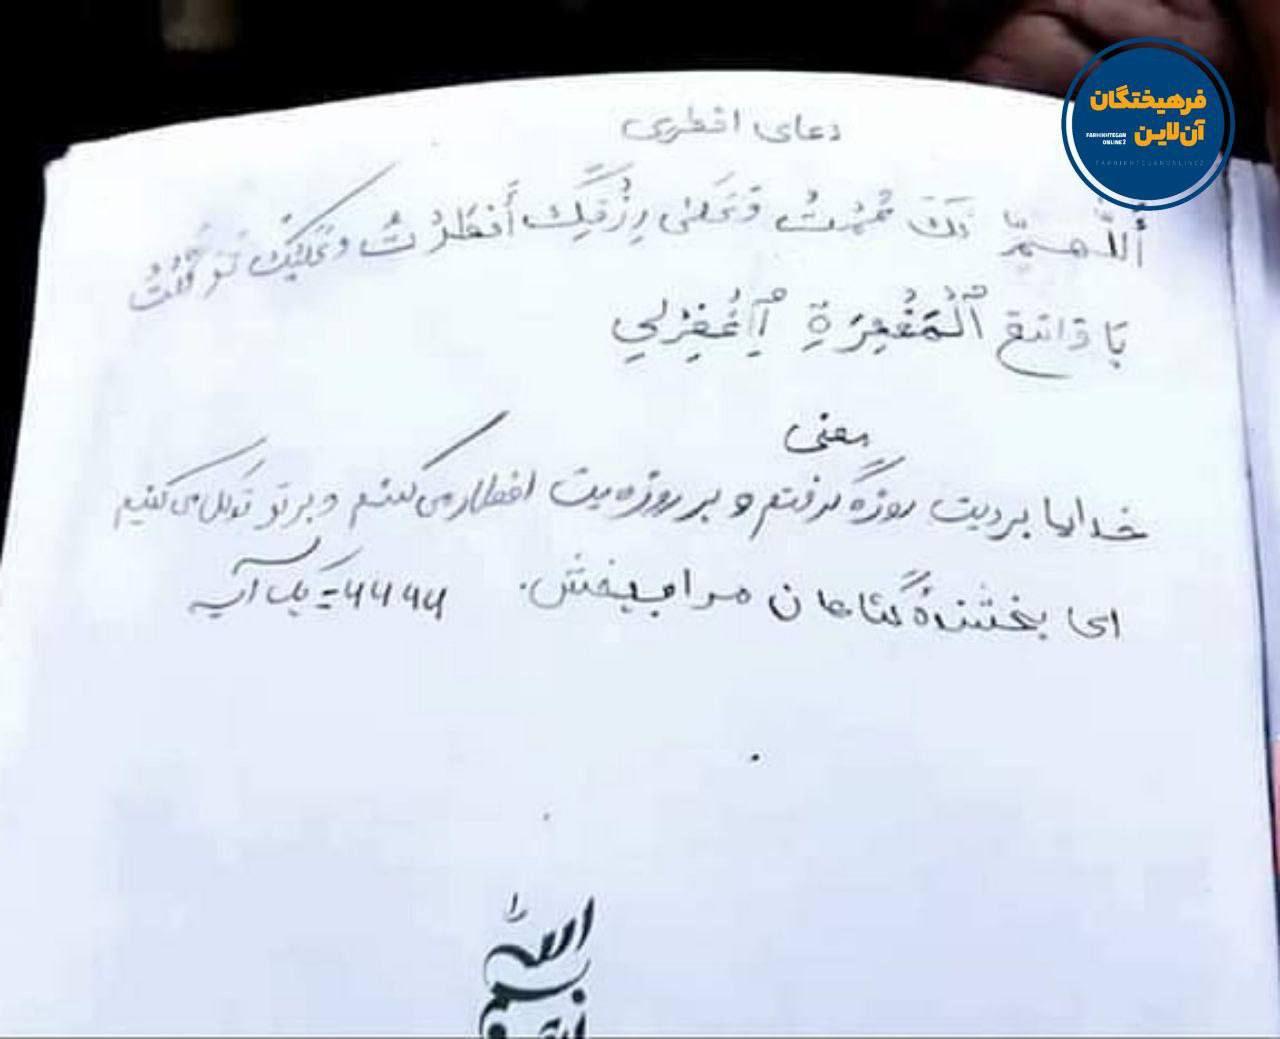 فرهیختگان
آن‌لاین
FARHIKHTEGAN
ONLINE2
FARHIKHTEGANONLINE2
دعای افطری
أَللّهمّ لَكَ صُمْتُ وَعَلی رِزْقِكَ أَفْطَرْتُ وَعَلَيْكَ تَوَكَّلْتُ
يَا وَاسِعَ ٱلْمَغْفِرَةِ إِغْفِرْلِي
معنی
خدایا بر دیت روزه گرفتم و بر روزه یت افطار می کنم و بر تو توکل می کنیم
ای بخشندهٔ گناهان مرا ببخش. ۶۶۶۶ = یک آیه
الله